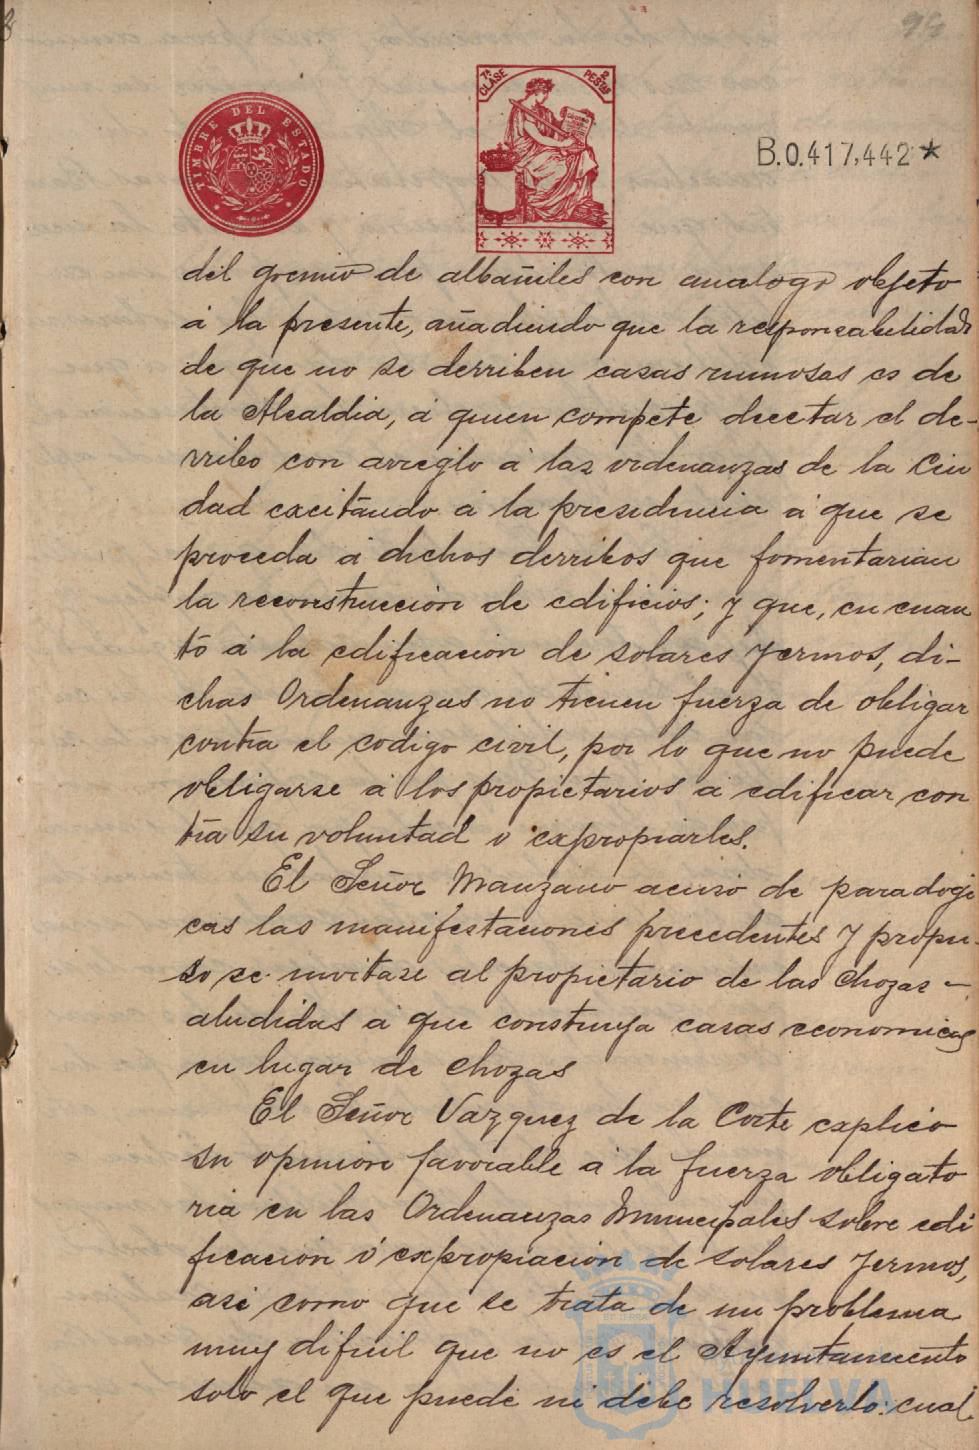 98
TIMBRE DEL ESTADO
7ª CLASE
2 PESTAS
B.0.417,442 ★
del gremio de albañiles con analogo objeto
á la presente, añadiendo que la responsabilidad
de que no se derriben casas ruinosas es de
la Alcaldia, á quien compete decretar el de-
rribo con arreglo á las ordenanzas de la Ciu
dad excitando á la presidencia á que se
proceda á dichos derribos que fomentarian
la reconstrucción de edificios; y que, en cuan
tó á la edificación de solares yermos, di-
chas Ordenanzas no tienen fuerza de obligar
contra el codigo civil, por lo que no puede
obligarse á los propietarios á edificar con
tra su voluntad o expropiarles.
El Señor Manzano acusó de paradogi
cas las manifestaciones precedentes y propu-
so se invitase al propietario de las chozas -
aludidas á que construya casas economicas
en lugar de chozas
El Señor Vazquez de la Corte explicó
su opinion favorable á la fuerza obligato
ria en las Ordenanzas Municipales sobre edi
ficación ó expropiación de solares yermos,
asi como que se trata de un problema
muy dificil que no es el Ayuntamiento
solo el que puede ni debe resolverlo: cual
HUELVA